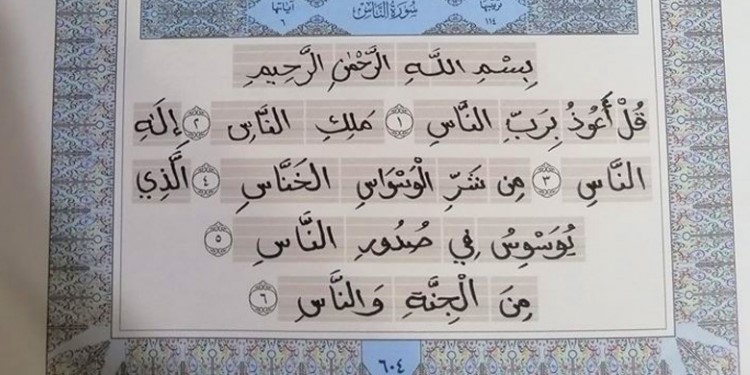 ترتيبها ١١٤ سُورَةُ النَّاسِ آياتها ٦
بِسْمِ اللَّهِ الرَّحْمَٰنِ الرَّحِيمِ
قُلْ أَعُوذُ بِرَبِّ النَّاسِ ١ مَلِكِ النَّاسِ ٢ إِلَٰهِ
النَّاسِ ٣ مِن شَرِّ الْوَسْوَاسِ الْخَنَّاسِ ٤ الَّذِي
يُوَسْوِسُ فِي صُدُورِ النَّاسِ ٥
مِنَ الْجِنَّةِ وَالنَّاسِ ٦
٦٠٤